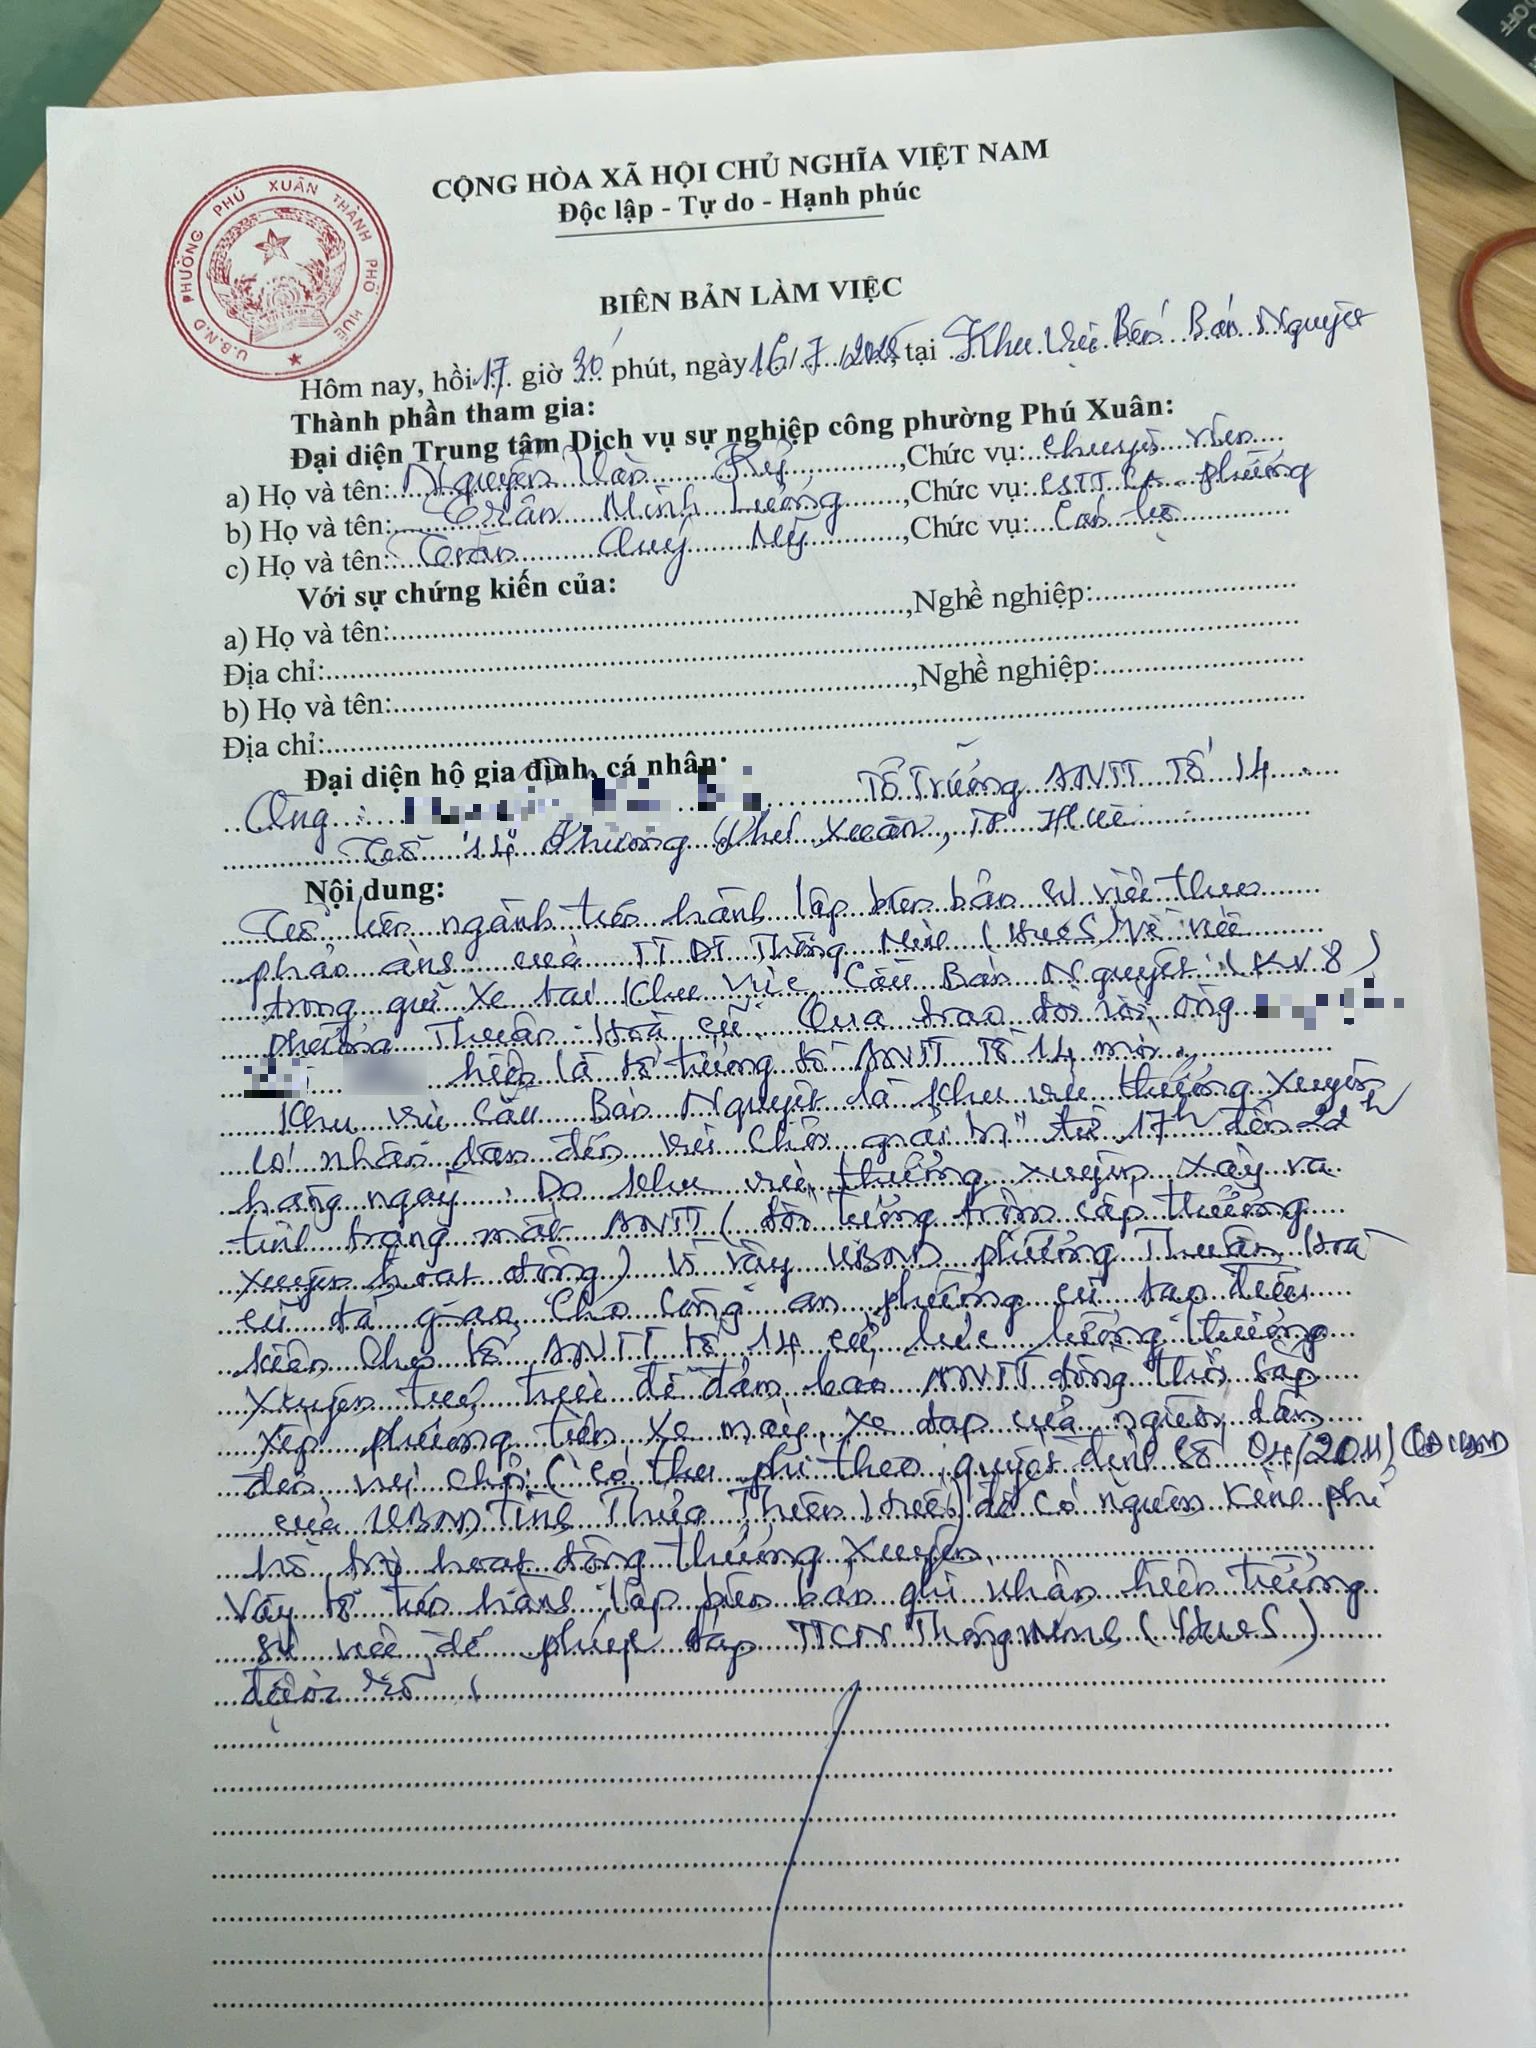 CỘNG HÒA XÃ HỘI CHỦ NGHĨA VIỆT NAM
Độc lập - Tự do - Hạnh phúc
U.B.N.D PHƯỜNG PHÚ XUÂN THÀNH PHỐ HUẾ
BIÊN BẢN LÀM VIỆC
Hôm nay, hồi 17 giờ 30 phút, ngày 16/7/2025, tại Khu vực Bến Bán Nguyệt
Thành phần tham gia:
Đại diện Trung tâm Dịch vụ sự nghiệp công phường Phú Xuân:
a) Họ và tên: Nguyễn Văn, Chức vụ: chuyên viên
b) Họ và tên: Trần Minh Lương, Chức vụ: CSTT CA phường
c) Họ và tên: Trần Quý Mỹ, Chức vụ: Cán bộ
Với sự chứng kiến của:
a) Họ và tên:, Nghề nghiệp:
Địa chỉ:
b) Họ và tên:, Nghề nghiệp:
Địa chỉ:
Đại diện hộ gia đình, cá nhân:
Ông: Tổ Trưởng ANTT Tổ 14
Tổ 14 Phường Phú Xuân, TP Huế
Nội dung:
Tổ liên ngành tiến hành lập biên bản sự việc theo
phản ánh của TT ĐT Thông Minh (HueS) về việc
trông giữ xe tại Khu vực Cầu Bán Nguyệt (KV8)
phường Thuận Hoà cũ. Qua trao đổi với ông
hiện là tổ trưởng tổ ANTT Tổ 14 mới
Khu vực Cầu Bán Nguyệt là khu vực thường xuyên
có nhân dân đến vui chơi giải trí từ 17h đến 22h
hàng ngày. Do khu vực thường xuyên xảy ra
tình trạng mất ANTT (đối tượng trộm cắp thường
xuyên hoạt động) vì vậy UBND phường Thuận Hoà
cũ đã giao cho công an phường cũ tạo điều
kiện cho tổ ANTT tổ 14 cử lực lượng thường
xuyên túc trực để đảm bảo ANTT đồng thời sắp
xếp phương tiện xe máy, xe đạp của người dân
đến vui chơi (có thu phí theo quyết định số 04/2011/QĐ UBND
của UBND Tỉnh Thừa Thiên Huế) để có nguồn kinh phí
hỗ trợ hoạt động thường xuyên.
Vậy tổ tiến hành lập biên bản ghi nhận hiện tượng
sự việc để phúc đáp TTCN Thông Minh (HueS)
được rõ.